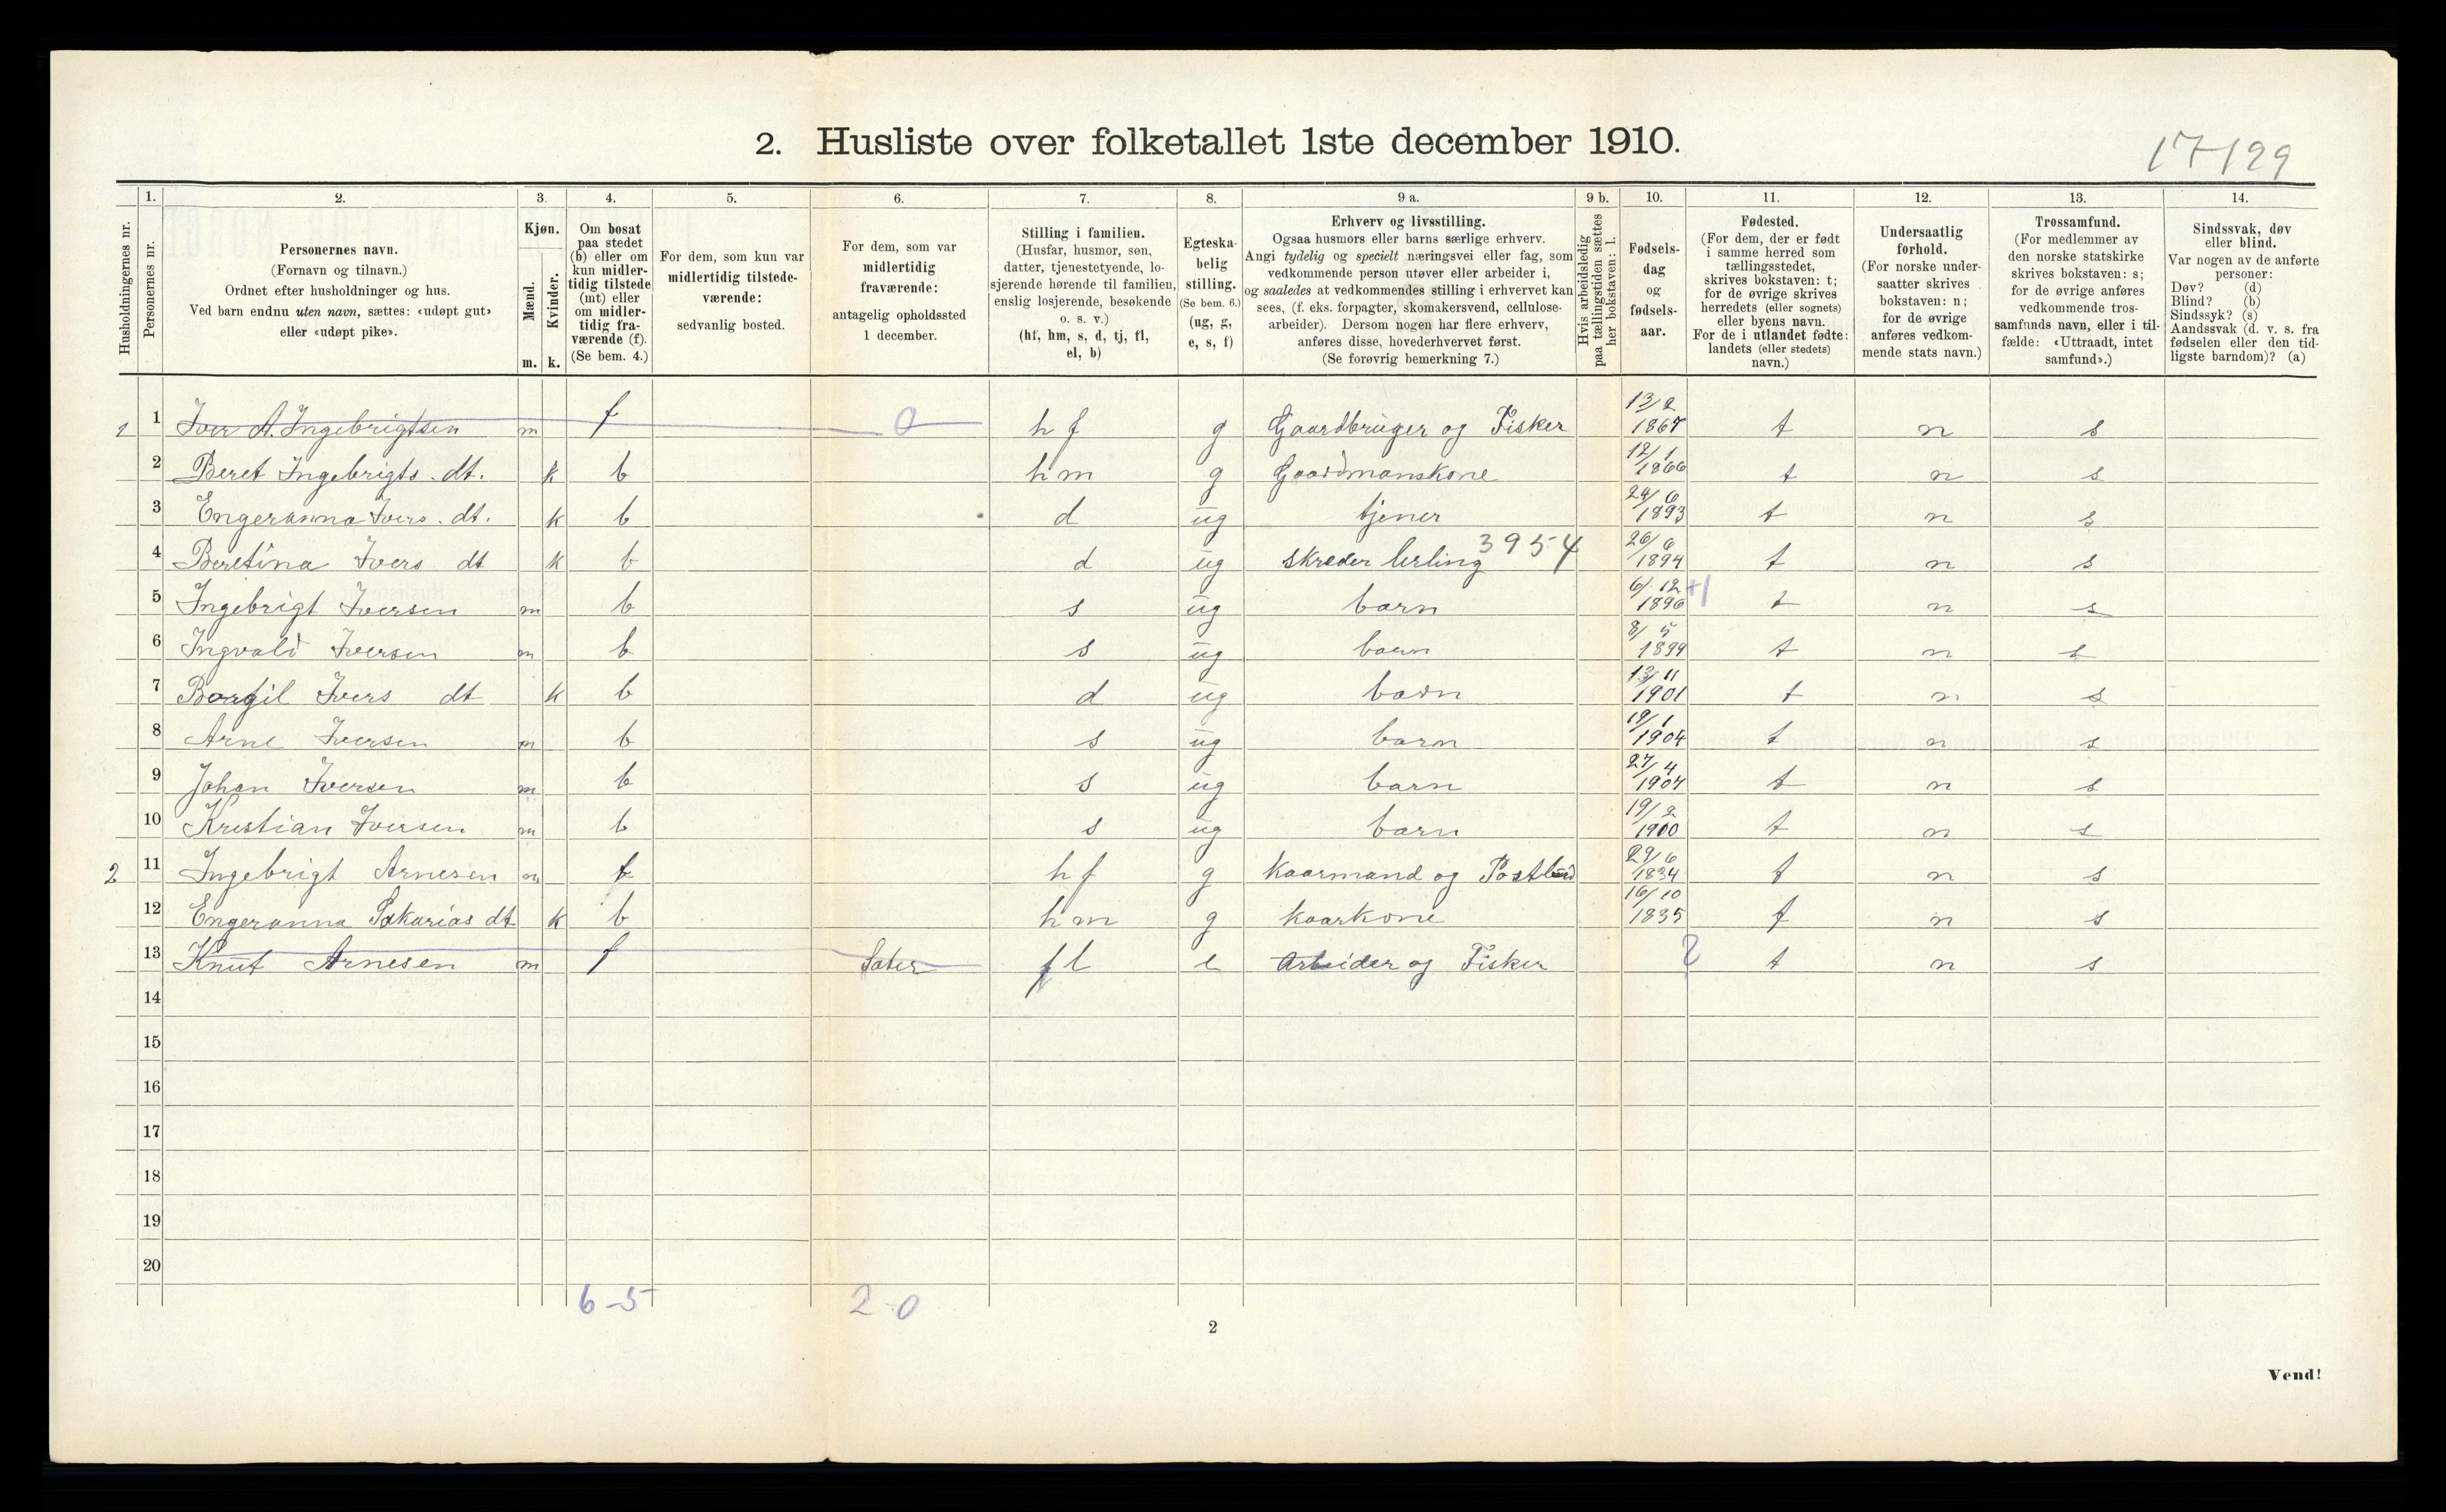 2. Husliste over folketallet 1ste december 1910.
17-129
Husholdningernes nr.
1. Personernes nr.
2. Personernes navn.
(Fornavn og tilnavn.)
Ordnet efter husholdninger og hus.
Ved barn endnu uten navn, sættes: «udøpt gut»
eller «udøpt pike».
3. Kjøn.
Mænd. m.
Kvinder. k.
4. Om bosat
paa stedet
(b) eller om
kun midler-
tidig tilstede
(mt) eller
om midler-
tidig fra-
værende (f).
(Se bem. 4.)
5. For dem, som kun var
midlertidig tilstede-
værende:
sedvanlig bosted.
6. For dem, som var
midlertidig
fraværende:
antagelig opholdssted
1 december.
7. Stilling i familien.
(Husfar, husmor, søn,
datter, tjenestetyende, lo-
sjerende hørende til familien,
enslig losjerende, besøkende
o. s. v.)
(hf, hm, s, d, tj, fl,
el, b)
8. Egteska-
belig
stilling.
(Se bem. 6.)
(ug, g,
e, s, f)
9 a. Erhverv og livsstilling.
Ogsaa husmors eller barns særlige erhverv.
Angi tydelig og specielt næringsvei eller fag, som
vedkommende person utøver eller arbeider i,
og saaledes at vedkommendes stilling i erhvervet kan
sees, (f. eks. forpagter, skomakersvend, cellulose-
arbeider). Dersom nogen har flere erhverv,
anføres disse, hovederhvervet først.
(Se forøvrig bemerkning 7.)
9 b. Hvis arbeidsledig
paa tællingstiden sættes
her bokstaven: l.
10. Fødsels-
dag
og
fødsels-
aar.
11. Fødested.
(For dem, der er født
i samme herred som
tællingsstedet,
skrives bokstaven: t;
for de øvrige skrives
herredets (eller sognets)
eller byens navn.
For de i utlandet fødte:
landets (eller stedets)
navn.)
12. Undersaatlig
forhold.
(For norske under-
saatter skrives
bokstaven: n;
for de øvrige
anføres vedkom-
mende stats navn.)
13. Trossamfund.
(For medlemmer av
den norske statskirke
skrives bokstaven: s;
for de øvrige anføres
vedkommende tros-
samfunds navn, eller i til-
fælde: «Uttraadt, intet
samfund».)
14. Sindssvak, døv
eller blind.
Var nogen av de anførte
personer:
Døv? (d)
Blind? (b)
Sindssyk? (s)
Aandssvak (d. v. s. fra
fødselen eller den tid-
ligste barndom)? (a)
1 1 Iver A. Ingebrigtsen m f 0 hf g Gaardbruger og Fisker 13/2 1867 t n s
2 Beret Ingebrigts. dt. k b hm g Gaardmanskone 12/1 1866 t n s
3 Engeranna Ivers. dt. k b d ug tjener 24/6 1893 t n s
4 Beretina Ivers dt k b d ug skreder lerling 3954 26/6 1894 t n s
5 Ingebrigt Iversen m b s ug barn 6/12 1896 +1 t n s
6 Ingvald Iversen m b s ug barn 8/5 1899 t n s
7 Borgil Ivers dt k b d ug barn 13/11 1901 t n s
8 Arne Iversen m b s ug barn 19/1 1904 t n s
9 Johan Iversen m b s ug barn 27/4 1907 t n s
10 Kristian Iversen m b s ug barn 19/2 1900 t n s
2 11 Ingebrigt Arnesen m b hf g Kaarmand og Postbud 29/6 1834 t n s
12 Engeranna Sakarias dt k b hm g Kaarkone 16/10 1835 t n s
13 Knut Arnesen m f Sæter fl e Arbeider og Fisker ? t n s
14
15
16
17
18
19
20
6-5 2-0
2
Vend!